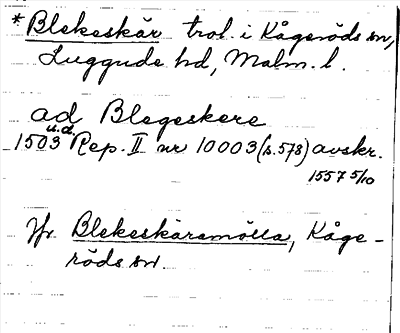 * Blekeskär trol. i Kågeröds sn,
Luggude hd, Malm. l.
ad Blegeskere
1503 u.d. Rep. II nr 10003 (s. 578) avskr.
1557 5/10
Jfr Blekeskärsmölla, Kåge-
röds sn.